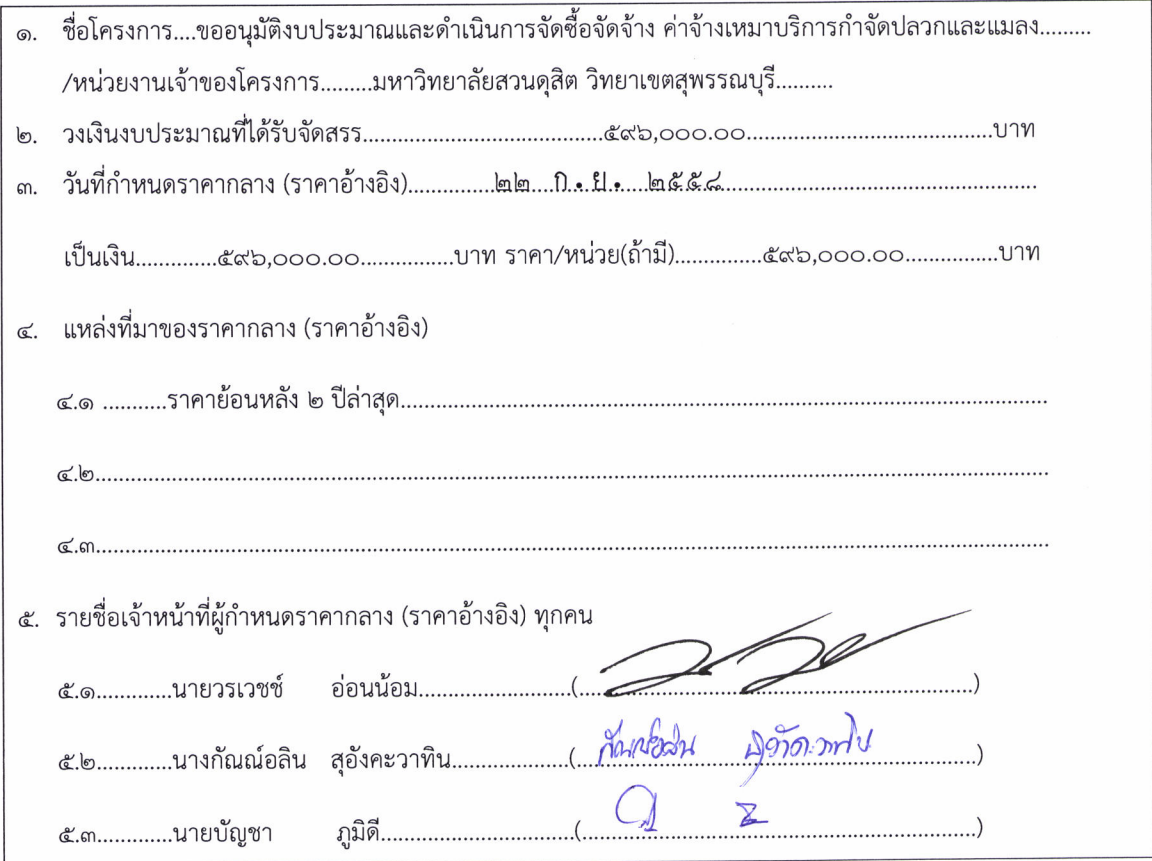 ๑. ชื่อโครงการ....ขออนุมัติงบประมาณและดำเนินการจัดซื้อจัดจ้าง ค่าจ้างเหมาบริการกำจัดปลวกและแมลง.........
/หน่วยงานเจ้าของโครงการ.........มหาวิทยาลัยสวนดุสิต วิทยาเขตสุพรรณบุรี..........
๒. วงเงินงบประมาณที่ได้รับจัดสรร.....................................๕๙๖,๐๐๐.๐๐......................................บาท
๓. วันที่กำหนดราคากลาง (ราคาอ้างอิง).............๒๒ ก.ย. ๒๕๕๘................................................
เป็นเงิน.............๕๙๖,๐๐๐.๐๐...............บาท ราคา/หน่วย(ถ้ามี)..............๕๙๖,๐๐๐.๐๐...............บาท
๔. แหล่งที่มาของราคากลาง (ราคาอ้างอิง)
๔.๑ ..........ราคาย้อนหลัง ๒ ปีล่าสุด....................................................................................................
๔.๒....................................................................................................................................................
๔.๓....................................................................................................................................................
๕. รายชื่อเจ้าหน้าที่ผู้กำหนดราคากลาง (ราคาอ้างอิง) ทุกคน
๕.๑............นายวรเวชช์ อ่อนน้อม........................(.............................................................)
๕.๒............นางกัณณ์อลิน สุอังคะวาทิน..................(กัณณ์อลิน สุอังคะวาทิน)
๕.๓............นายบัญชา ภูมิดี..............................(.............................................................)